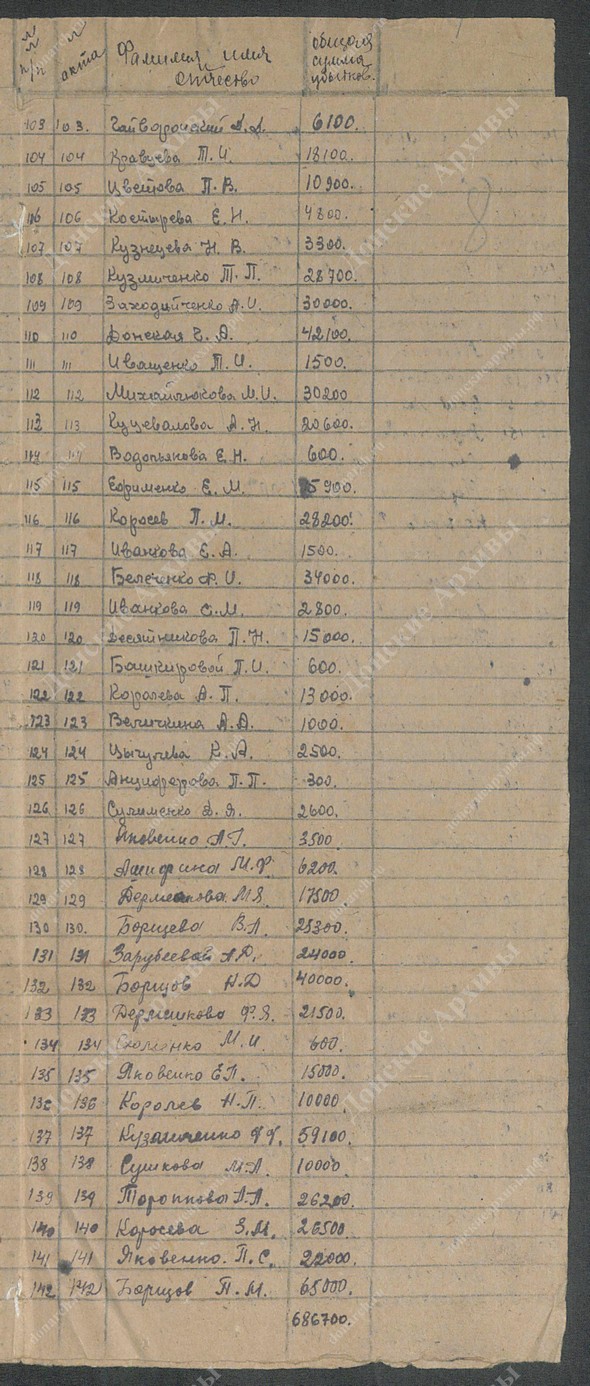 №№ п/п № акта Фамилия имя отчество общая сумма убытков.
103 103. Гайворонский А.А. 6100.
104 104 Кравцева Т.И. 18100.
105 105 Цветова П.В. 10900.
106 106 Костырева Е.Н. 4800.
107 107 Кузнецева Н.В. 3300.
108 108 Кузмиченко Т.П. 28700.
109 109 Заходийченко А.И. 30000.
110 110 Донская Е.А. 42100.
111 111 Иващенко Т.И. 1500.
112 112 Михайлюкова М.И. 30200
113 113 Куцевалова А.Н. 20600.
114 114 Водопьянова Е.Н. 600.
115 115 Ефрименко Е.М. 5900.
116 116 Коросев П.М. 28200.
117 117 Иванкова Е.А. 1500.
118 118 Белеченко Ф.И. 34000.
119 119 Иванкова С.М. 2800.
120 120 Десятникова П.Н. 15000.
121 121 Башкировой П.И. 600.
122 122 Королева А.П. 13000.
123 123 Величкина А.А. 1000.
124 124 Цыгулева А. 2500.
125 125 Анциферова П.П. 300.
126 126 Сулименко Д.Я. 2600.
127 127 Яковенко А.Г. 3500
128 128 М.Ф. 6200.
129 129 Держанова М.Я. 17500
130 130. Борщева В.Л. 25300.
131 131 Зарубеевой А.Д. 24000.
132 132 Борщов Н.Д 40000.
133 133 Ф.Я. 21500.
134 134 М.И. 600.
135 135 Яковенко Е.П. 15000.
136 136 Королев Н.П. 10000.
137 137 Кузмиченко Ф.Ф. 59100.
138 138 Сушкова М.А. 10000
139 139 Торопкова А.А. 26200.
140 140 Коросева З.М. 26500.
141 141 Яковенко П.С. 22000.
142 142 Борщов П.М. 65000.
686700.
8
Донские Архивы